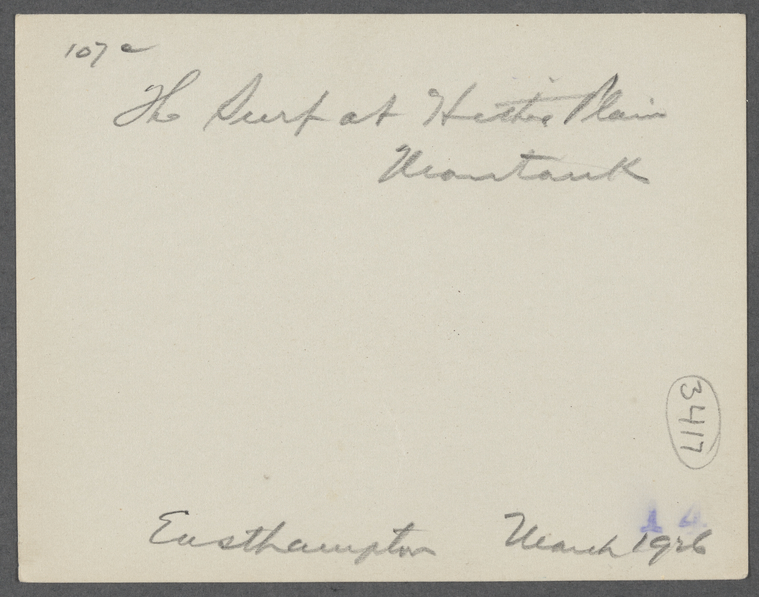 107 c
The Surf at Hither Plain
Montauk
3417
14
Easthampton March 1926